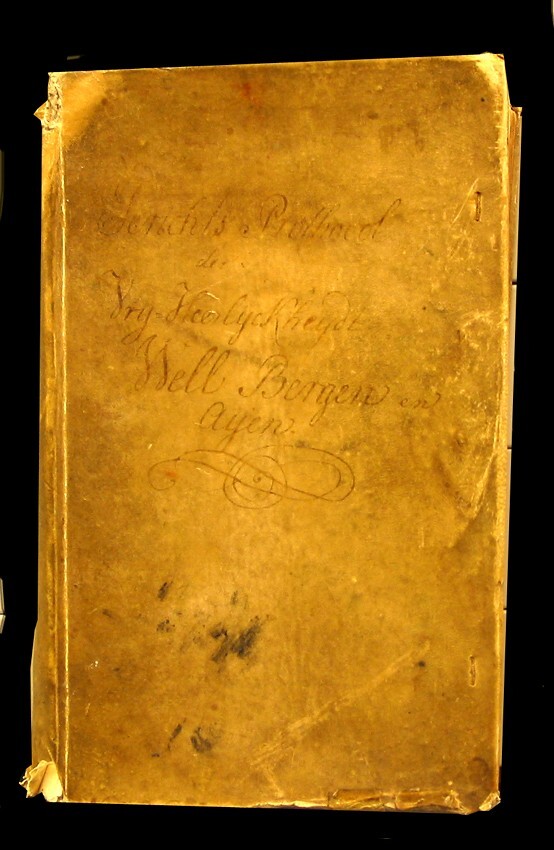 Gerichts Prothocol
der
Vry-Heerlyckheydt
Well Bergen en
Ayen